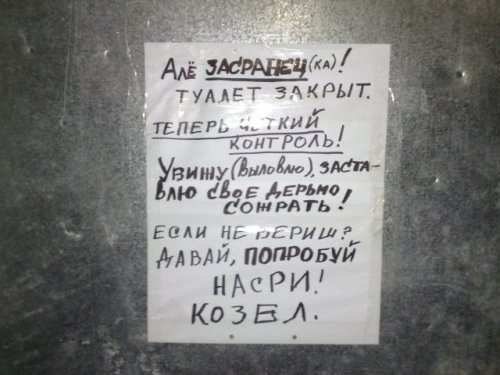 АЛЁ ЗАСРАНЕЦ(КА)!
ТУАЛЕТ ЗАКРЫТ.
ТЕПЕРЬ ЧЁТКИЙ
КОНТРОЛЬ!
УВИЖУ (ВЫЛОВЛЮ), ЗАСТА-
ВЛЮ СВОЕ ДЕРЬМО
СОЖРАТЬ!
ЕСЛИ НЕ ВЕРИШ?
ДАВАЙ, ПОПРОБУЙ
НАСРИ!
КОЗЕЛ.